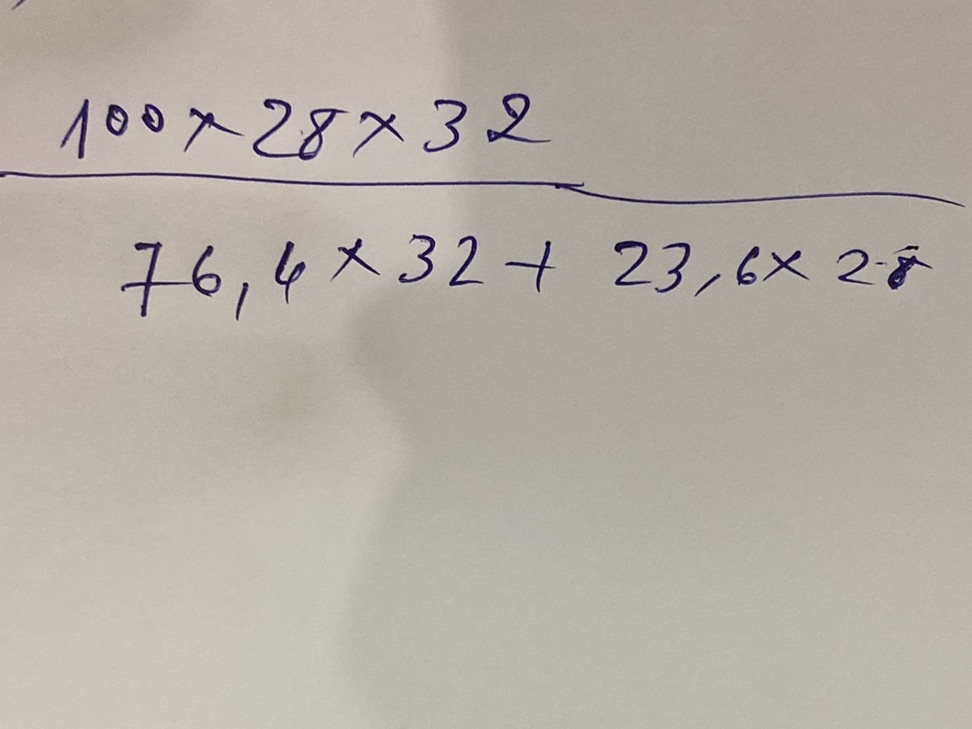 100 × 28 × 32
76,4 × 32 + 23,6 × 28